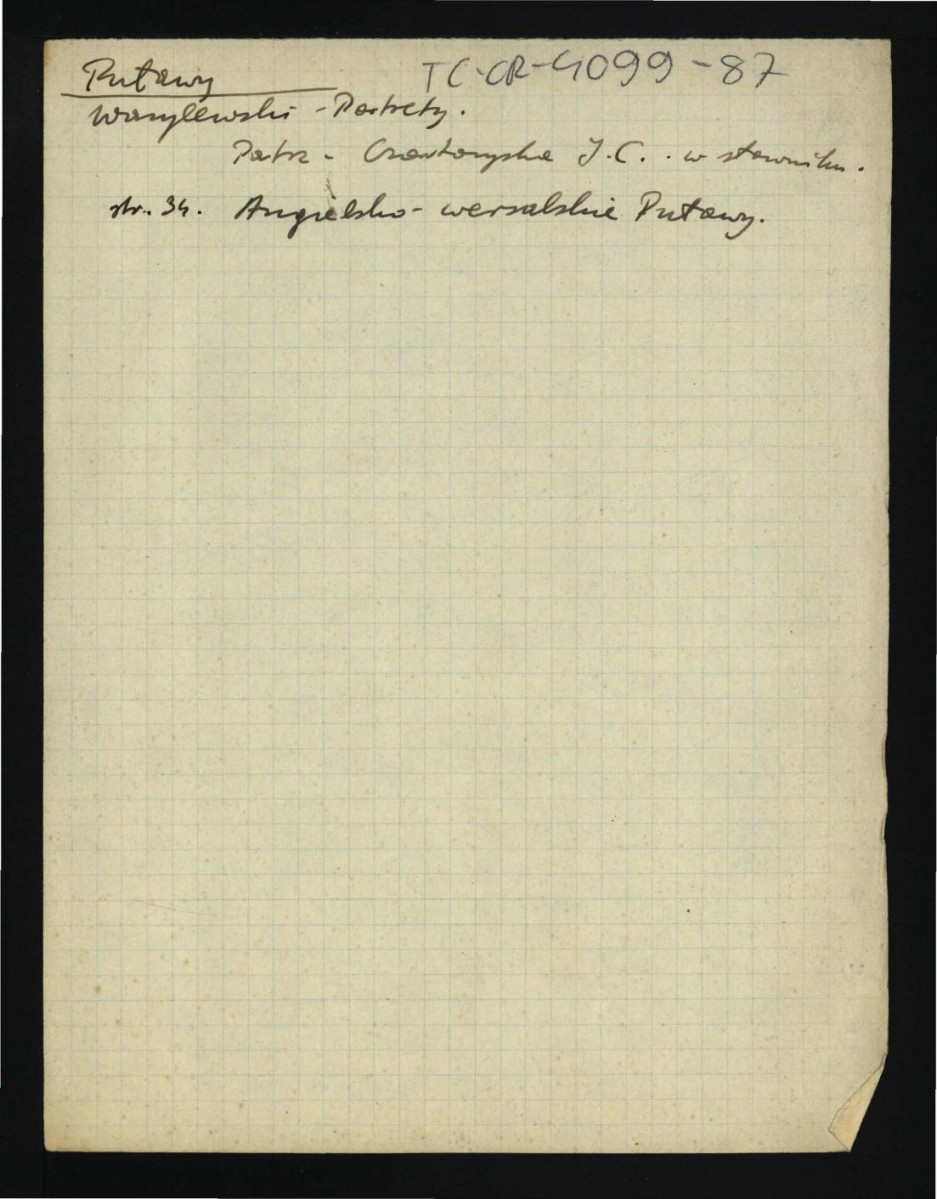 Puławy TC-CR-4099-87
Wasylewski - Portrety.
Patrz - Czartoryska I. C. . w słowniku.
str. 34. Angielsko - wersalskie Puławy.